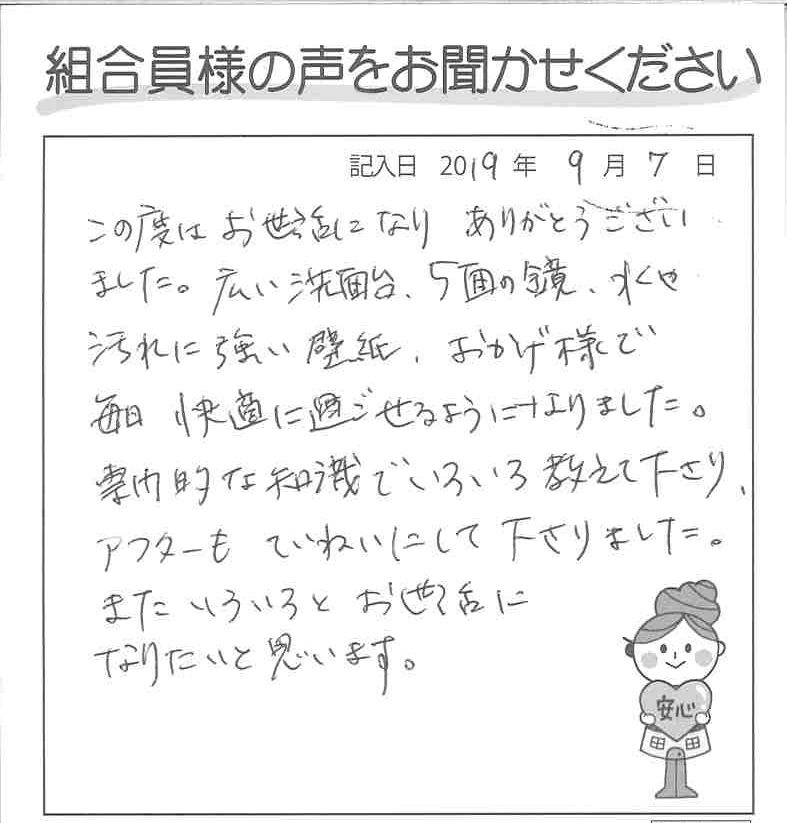 組合員様の声をお聞かせください
記入日 2019年 9月 7日
この度は お世話になり ありがとうござい
ました。広い洗面台、5面の鏡、水や
汚れに強い壁紙、おかげ様で
毎日 快適に過ごせるようになりました。
専門的な知識でいろいろ教えて下さり、
アフターも ていねいにして 下さりました。
またいろいろと お世話に
なりたいと思います。
安心